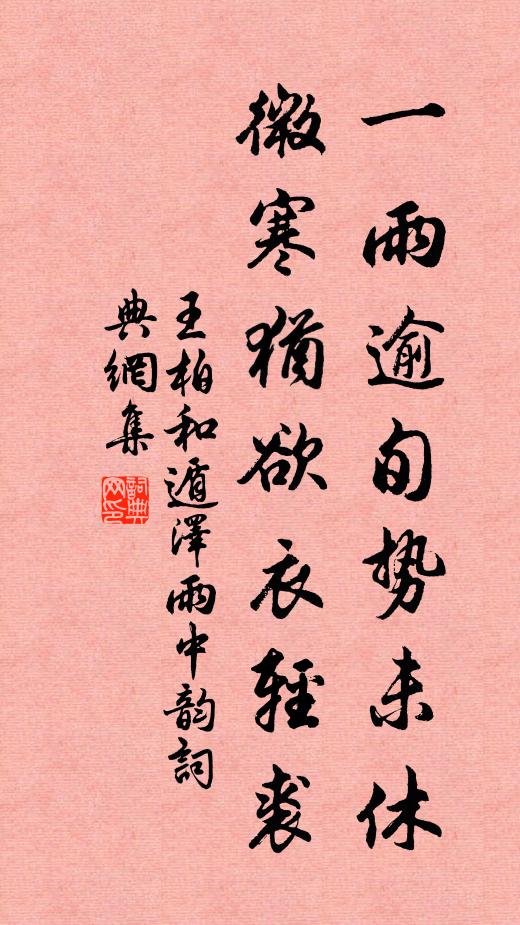 一雨逾旬势未休
微寒猶欲衣輕裘
王柏和遁澤雨中韵詞
典網集
詞典網印